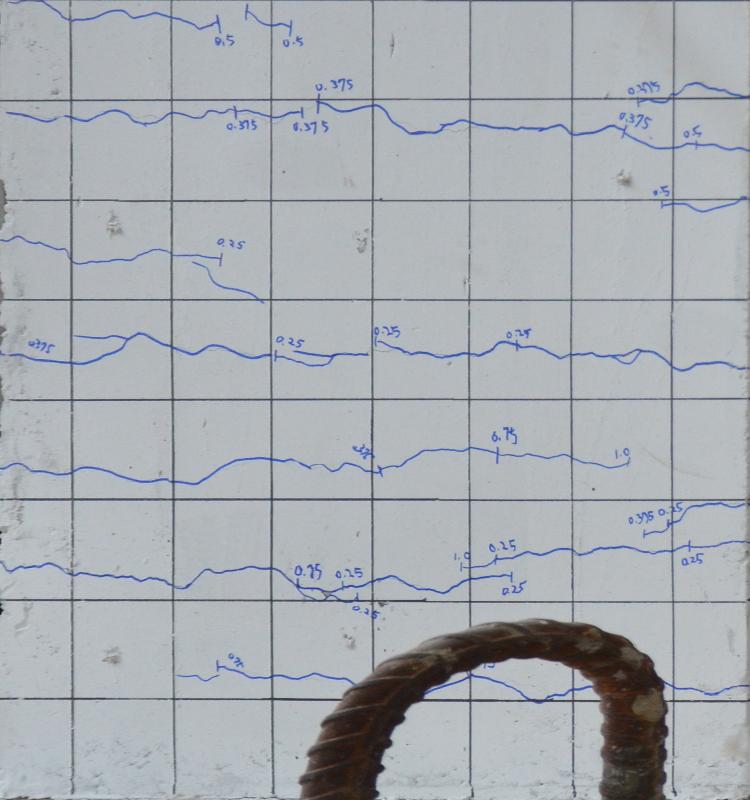 0.5
0.5
0.375
0.375
0.375
0.375
0.375
0.5
0.5
0.25
0.375
0.25
0.25
0.25
0.75
1.0
0.375
0.25
1.0
0.25
0.25
0.75
0.25
0.25